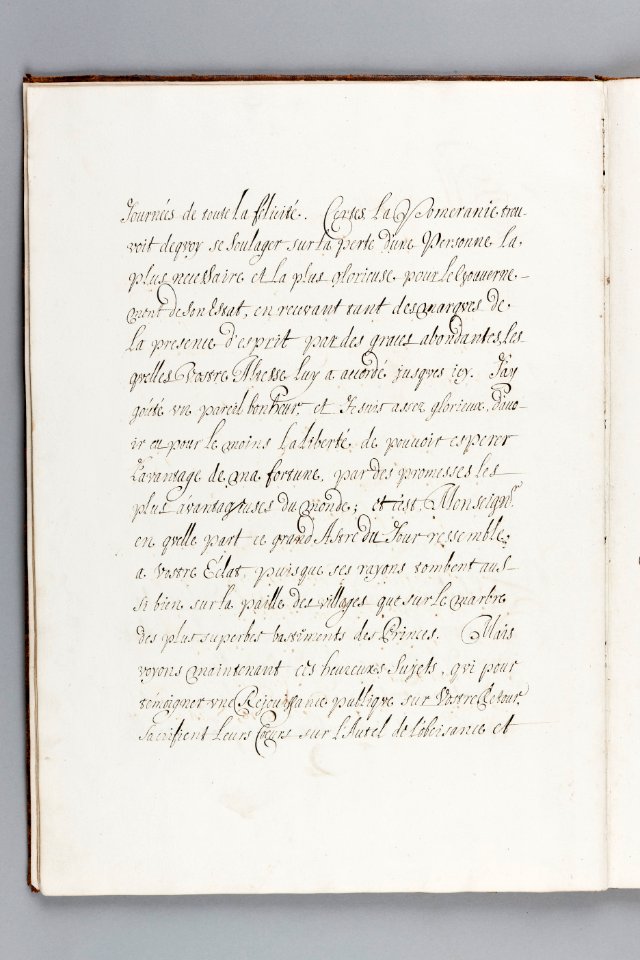 Journées de toute la félicité. Certes la Pomeranie trou-
voit dequoy se soulager sur la perte d'une Personne la
plus necessaire et la plus glorieuse pour le Gouverne-
ment de son Estat, en recevant tant des marques de
la presence d'esprit par des graces abondantes, les
quelles Vostre Altesse luy a accordé jusques icy. J'ay
goûté un pareil bonheur et Je suis assez glorieux, d'avo-
ir eu pour le moins la liberté de pouvoir esperer
L'avantage de ma fortune par des promesses les
plus avantageuses du monde; et c'est Monseignr.
en quelle part ce grand Astre du Jour ressemble
a Vostre Éclat, puisque ses rayons tombent aus
si bien sur la paille des villages que sur le marbre
des plus superbes bastiments des Princes. Mais
voyons maintenant ces heureux Sujets, qui pour
témoigner une Rejouissance publique sur Vostre Retour,
sacrifient Leurs Cœurs sur l'Autel de l'obeisance et